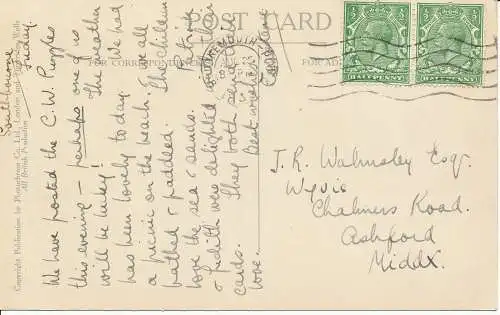 POST CARD
FOR CORRESPONDENCE
Southbourne
Sunday.
We have posted the C.W. Puzzles
this evening — perhaps one of us
will be lucky! The weather
has been lovely to-day. We had
a picnic on the beach & all
bathed & paddled. The children
love the sea & sands. Patrick
& Judith were delighted with their
cards. They both send their
love. Best wishes
J. R. Walmsley Esq.
Wyvie
Chalmers Road.
Ashford
Middx.
HALFPENNY
HALFPENNY
Copyright Publication by Photochrom Co., Ltd., London and Tunbridge Wells
All British Production